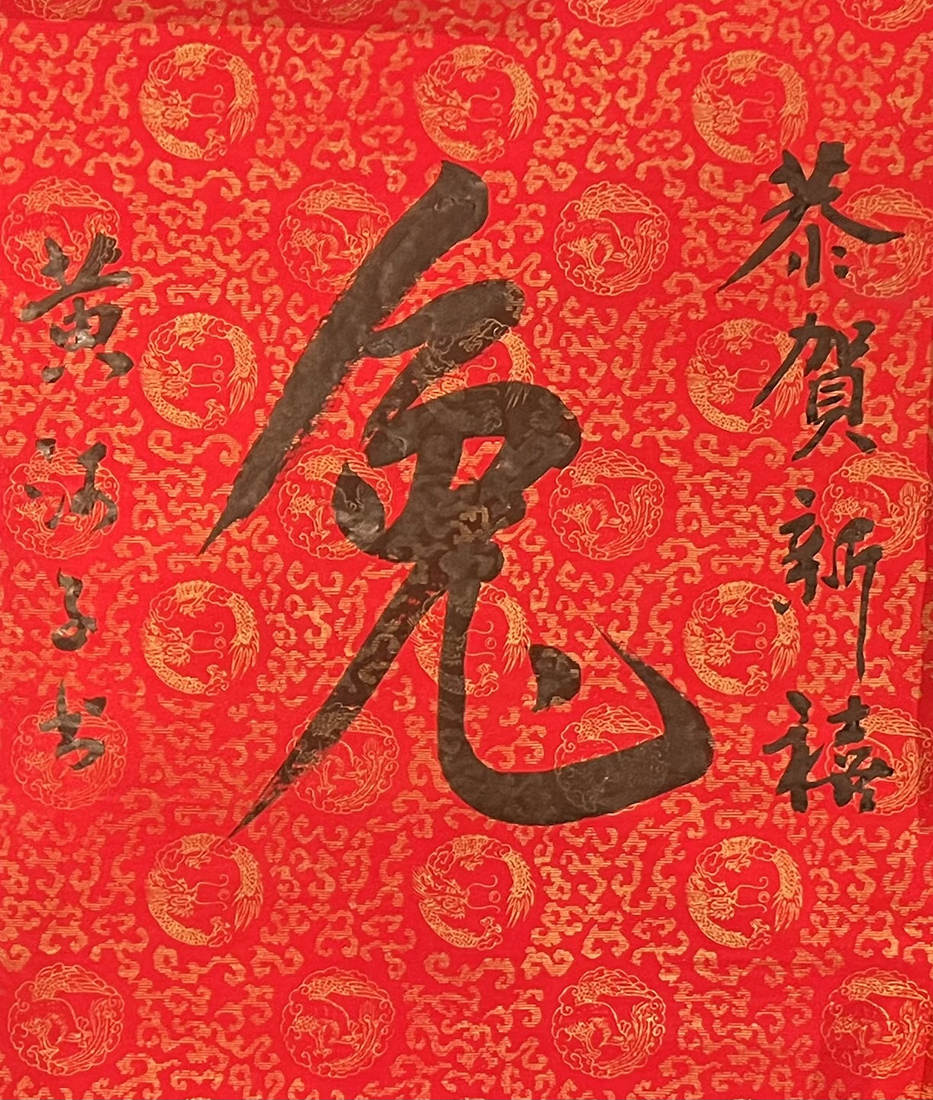 恭賀新禧
兔
黄子书